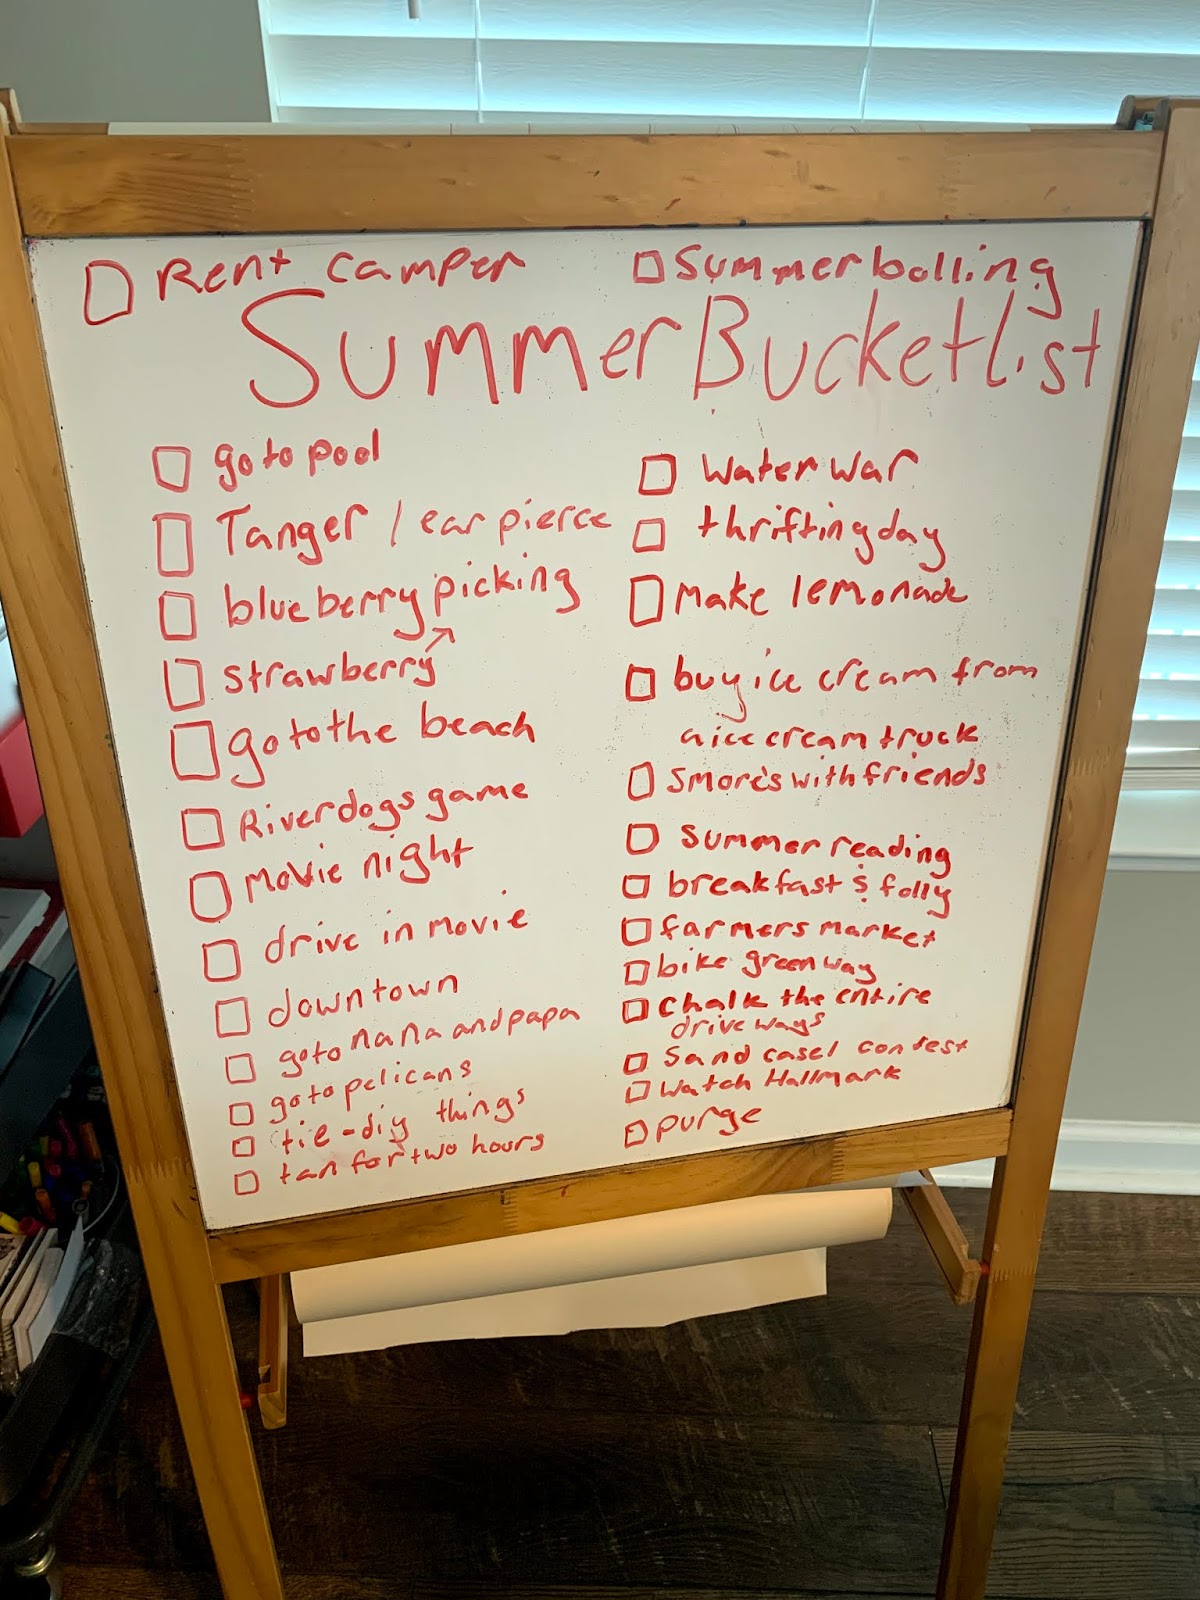 Rent camper
Summer bolling
Summer Bucket list
go to pool
Tanger / ear pierce
blueberry picking
strawberry ↗
go to the beach
Riverdogs game
Movie night
drive in movie
downtown
go to nana and papa
go to pelicans
tie-diy things
tan for two hours
water war
thrifting day
Make lemonade
buy ice cream from
a ice cream truck
Smores with friends
Summer reading
breakfast & folly
farmers market
bike green way
Chalk the entire
drive ways
Sand casel contest
Watch Hallmark
purge